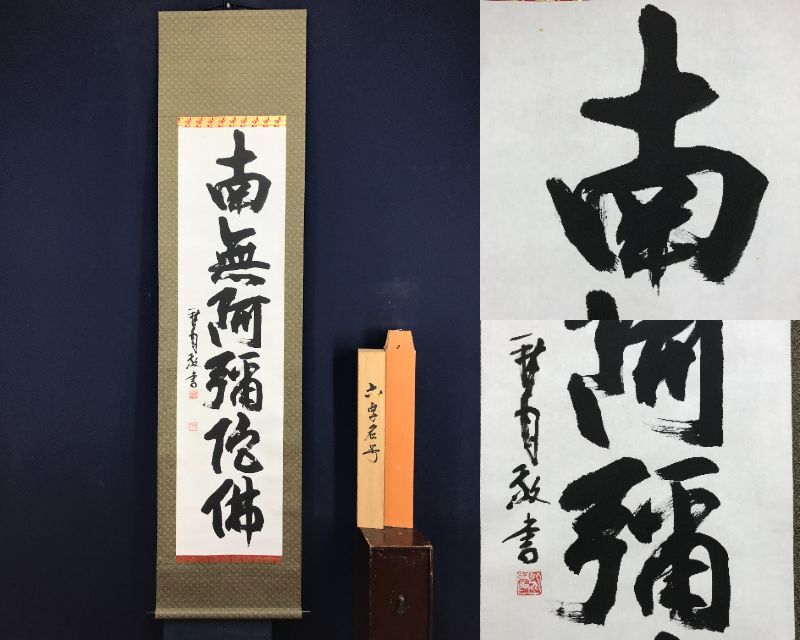 南無阿彌陀佛
敬書
六字名号
南
阿彌
敬書